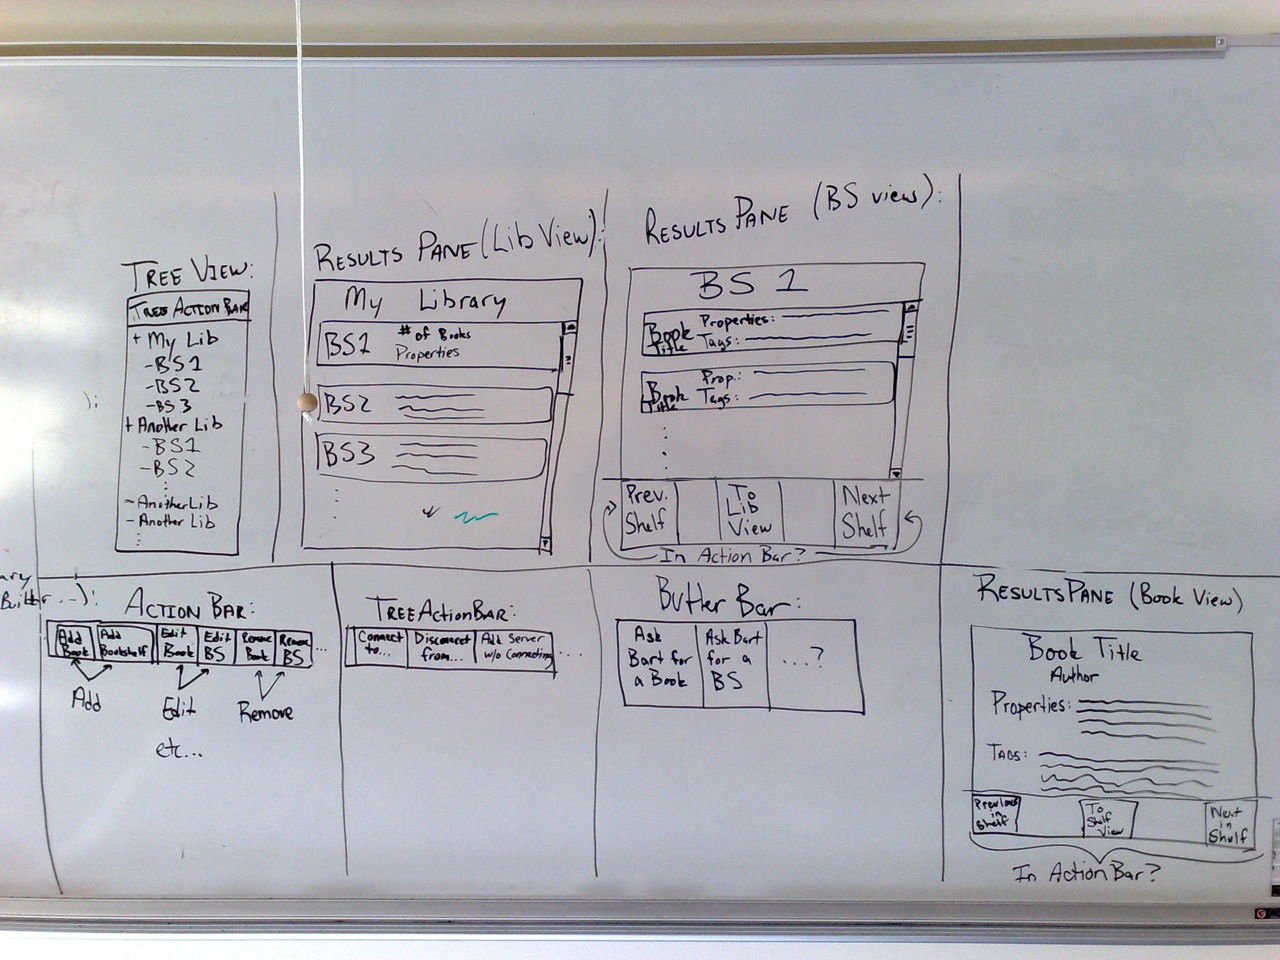 TREE VIEW:
TREE ACTION BAR
+ My Lib
-BS1
-BS2
-BS3
+ Another Lib
-BS1
-BS2
- Another Lib
- Another Lib
RESULTS PANE (Lib View):
My Library
BS1
# of Books
Properties
BS2
BS3
RESULTS PANE (BS view):
BS 1
Book Title
Properties:
Tags:
Book Title
Prop.:
Tags:
Prev. Shelf
To Lib View
Next Shelf
In Action Bar?
ACTION BAR:
Add Book
Add Bookshelf
Edit Book
Edit BS
Remove Book
Remove BS
...
Add
Edit
Remove
etc...
TREEACTIONBAR:
Connect to...
Disconnect from...
Add Server w/o Connecting
....
Butler Bar:
Ask Bart for a Book
Ask Bart for a BS
...?
RESULTS PANE (Book View)
Book Title
Author
Properties:
TAGS:
Previous in Shelf
To Shelf View
Next in Shelf
In Action Bar?